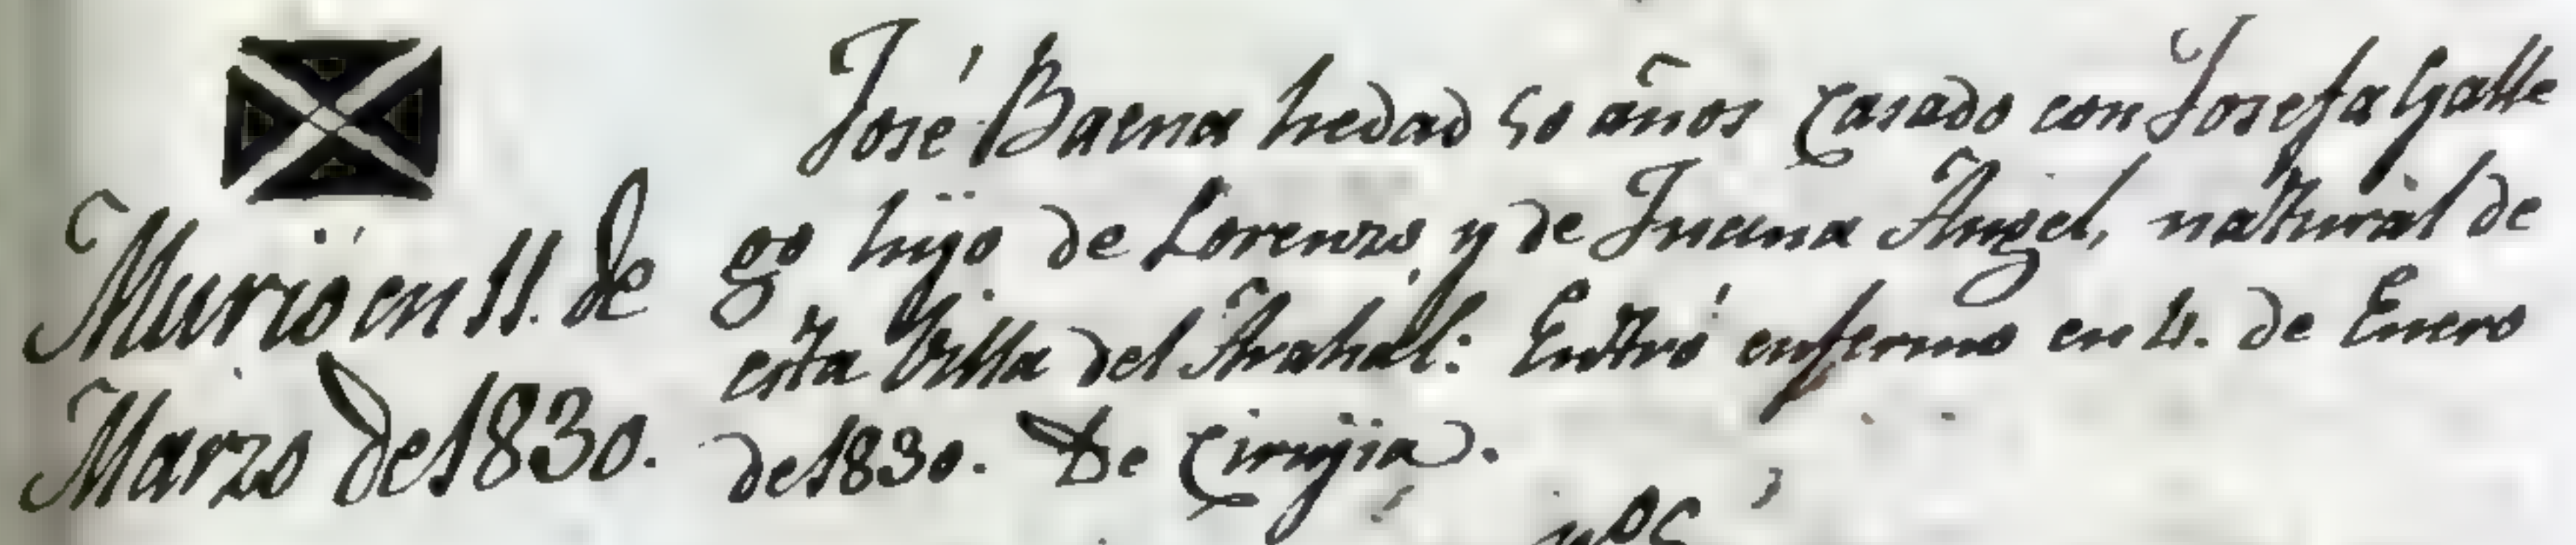 Murió en 11. de
Marzo de 1830.
José Baena hedad 50 años Casado con Josefa Galle
go hijo de Lorenzo y de Juana Angel, natural de
esta Villa del Arahal: Entró enfermo en 4. de Enero
de 1830. De Cirujia.